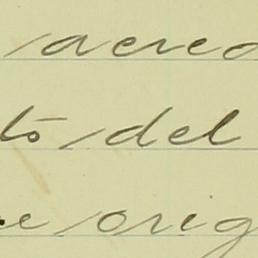 acred
to del
e orig